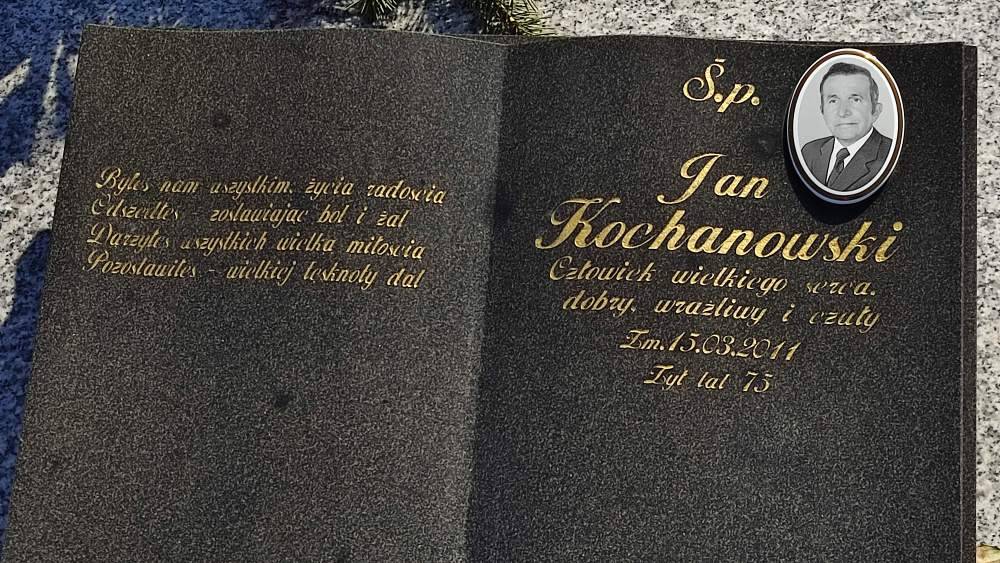 Byłeś nam wszystkim, życia radością
Odszedłeś - zostawiając ból i żal
Darzyłeś wszystkich wielką miłością
Pozostawiłeś - wielkiej tęsknoty dal
Ś.p.
Jan
Kochanowski
Człowiek wielkiego serca,
dobry, wrażliwy i czuły
Zm. 15.03.2011
Żył lat 75